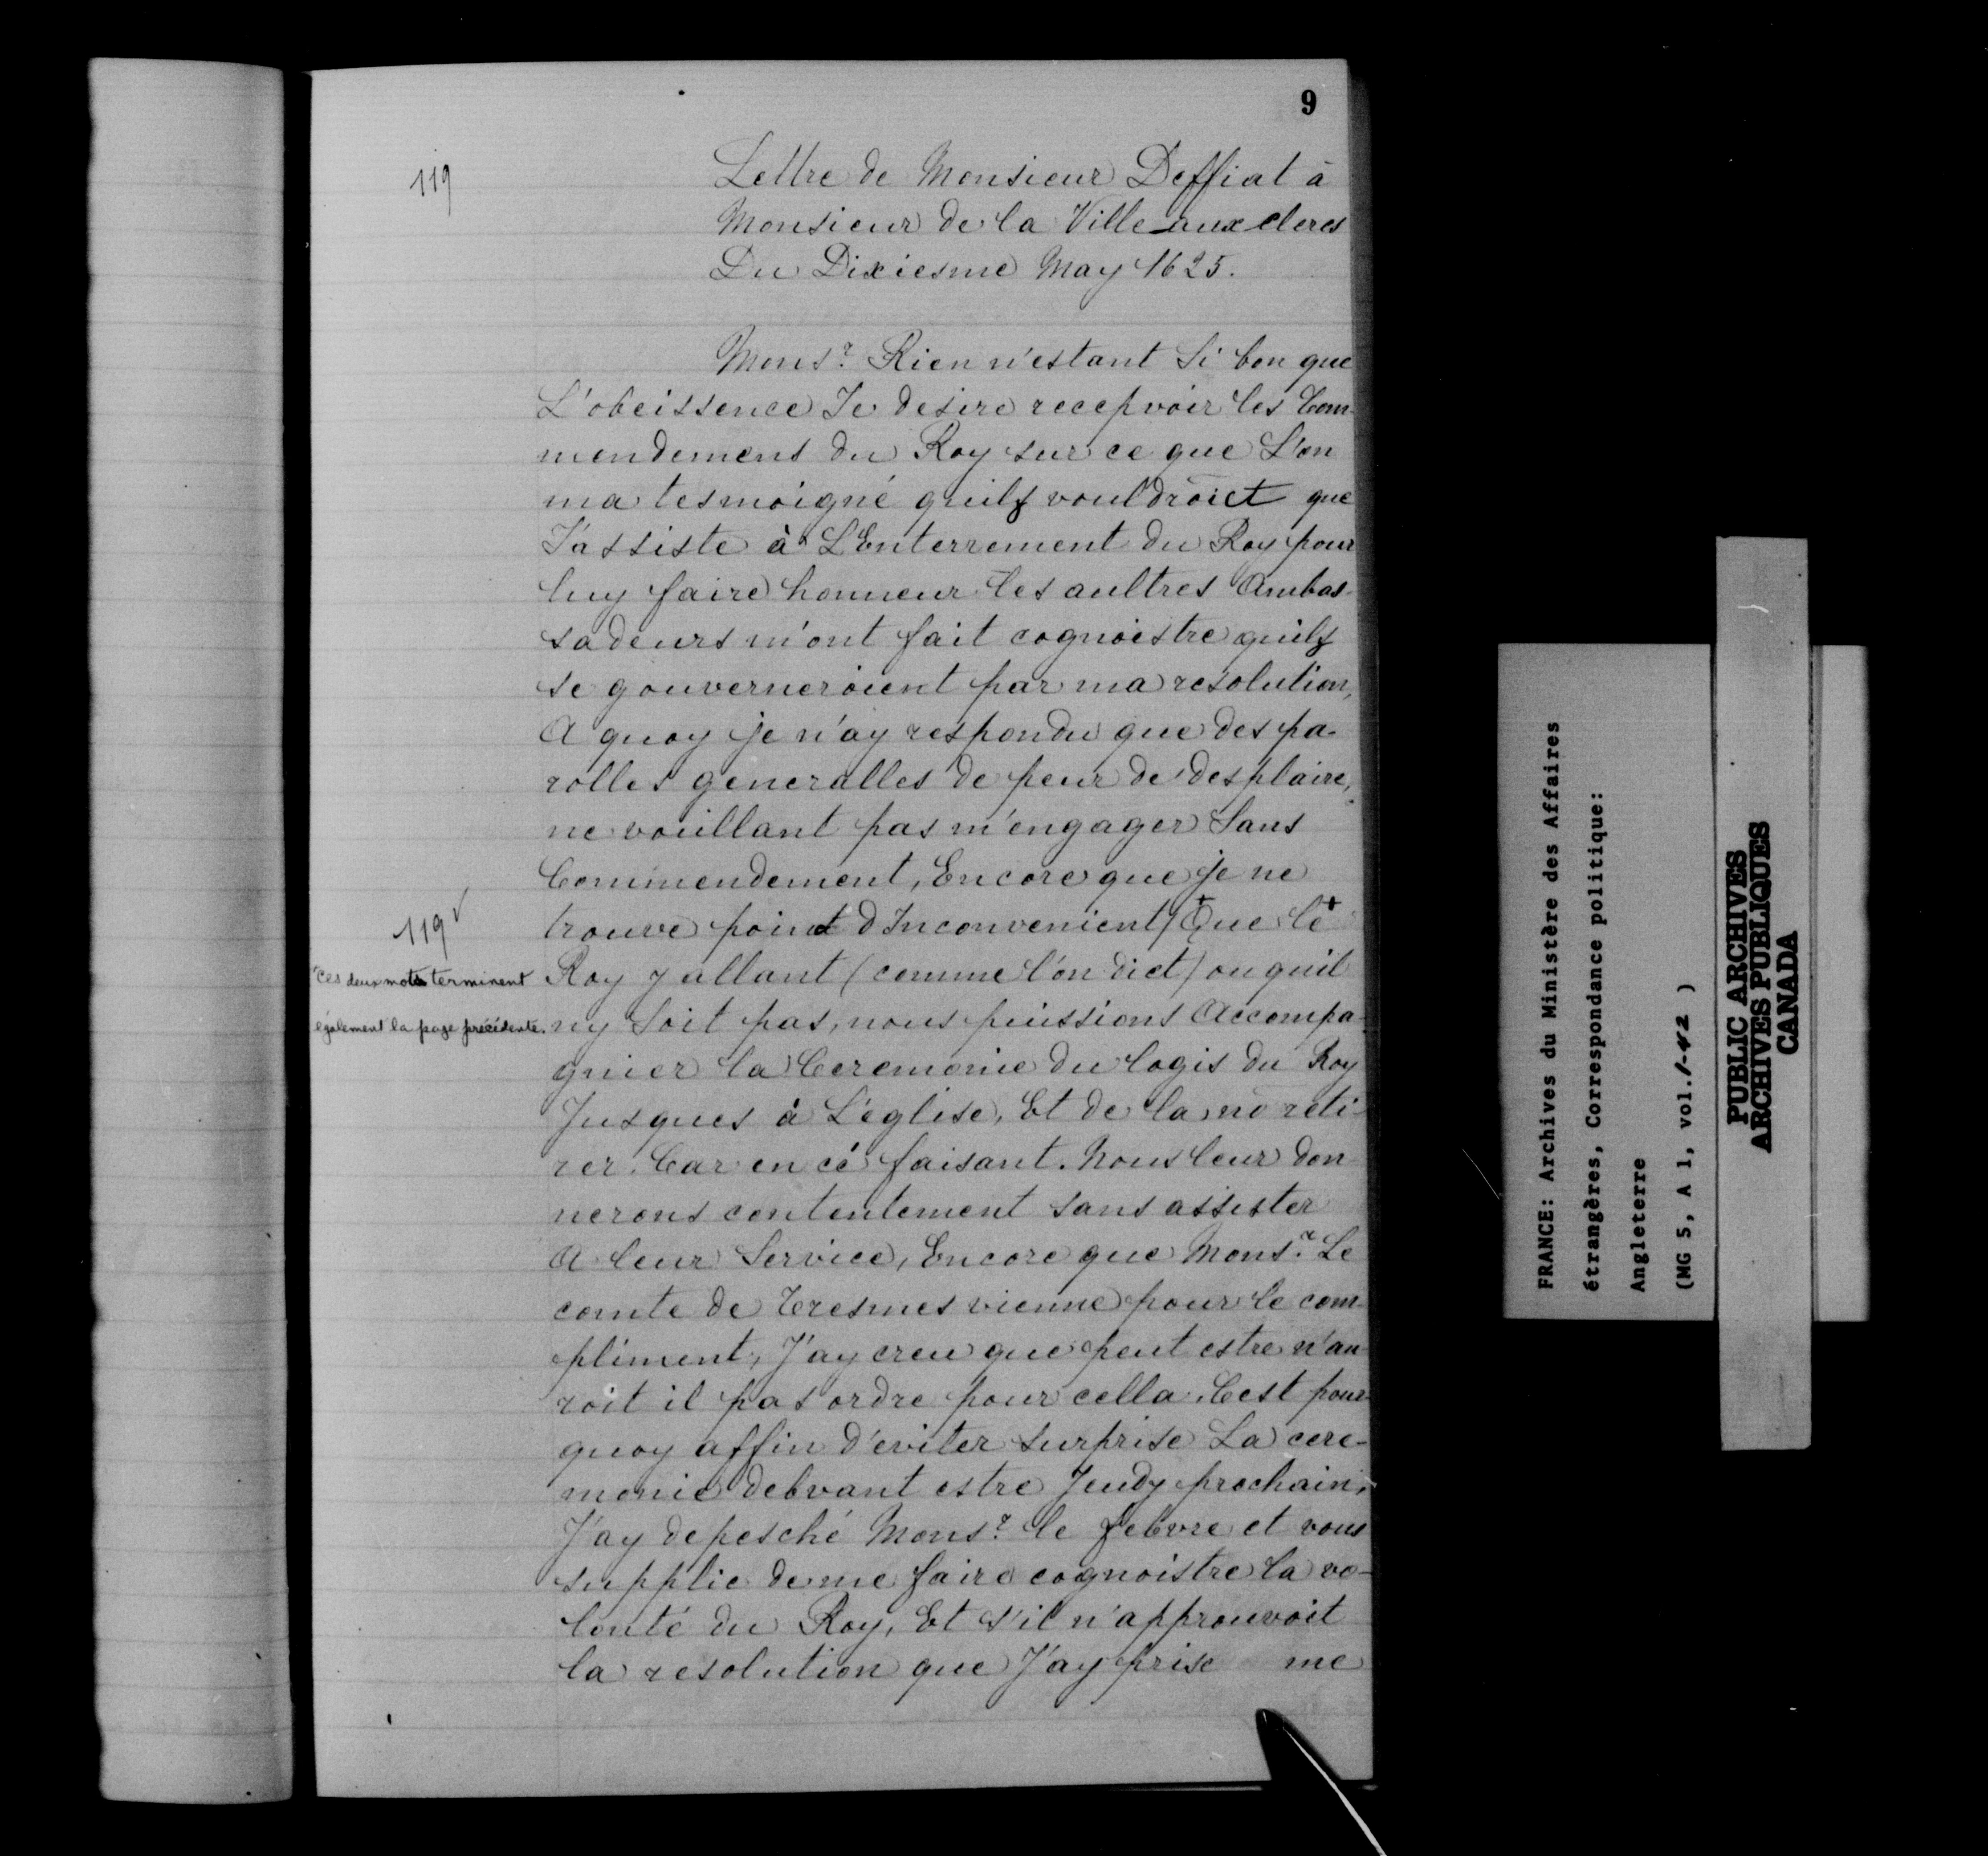 9
119
Lettre de Monsieur Deffiat à
Monsieur de la Ville aux clercs
Du Dixiesme May 1625.
Monsr. Rien n'estant Si bon que
L'obeissence Je desire recepvoir les Com-
mendemens du Roy sur ce que L'on
ma tesmoigné quilz vouldroict que
J'assiste à L'Enterrement du Roy pour
luy faire honneur les aultres Ambas-
sadeurs m'ont fait cognoistre quilz
se gouverneroient par ma resolution,
A quoy je n'ay respondu que des pa-
rolles generalles de peur de desplaire,
ne voüillant pas m'engager Sans
Commendement, Encore que je ne
trouve point d'Inconvenient / + Que le +
119 v
+ ces deux mots terminent
également la page précédente.
Roy y allant (comme l'on dict) ou quil
ny Soit pas, nous puissions Accompa-
gnier la Ceremonie du logis du Roy
Jusques à L'église, Et de la nō reti-
rer. Car en cé faisant. Nous leur don-
nerons contentement sans assister
A leur Service, Encore que Monsr. Le
comte de Tresmes vienne pour le com-
pliment, J'ay creu que peut estre n'au-
roit il pas ordre pour cella. C'est pour-
quoy affin d'eviter surprise La cere-
monie debvant estre Jeudy prochain,
J'ay depesché Monsr. le febvre et vous
supplie de me faire cognoistre la vo-
lonté du Roy, Et s'il n'approuvoit
la resolution que J'ay prise me
FRANCE: Archives du Ministère des Affaires
étrangères, Correspondance politique:
Angleterre
(MG 5, A 1, vol.1-42 )
PUBLIC ARCHIVES
ARCHIVES PUBLIQUES
CANADA